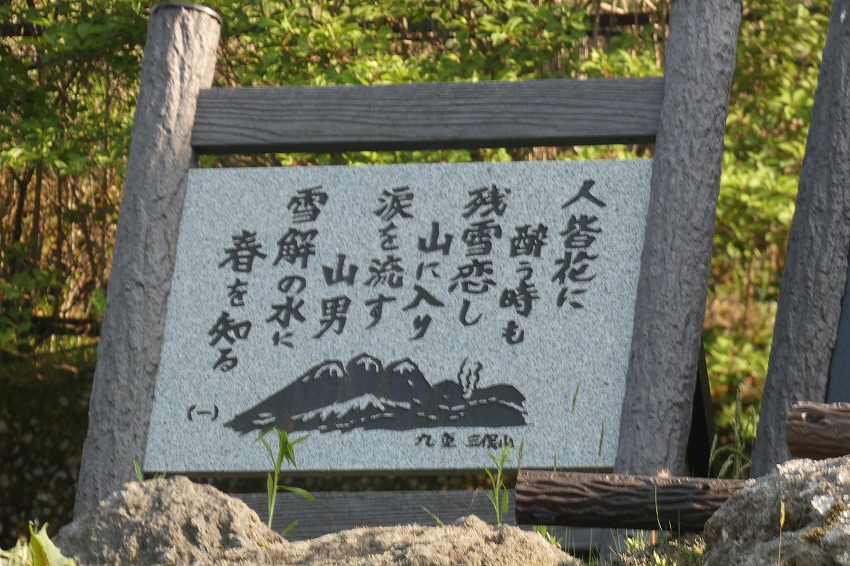 人皆花に
酔う時も
残雪恋し
山に入り
涙を流す
山男
雪解の水に
春を知る
(一)
九重 三俣山